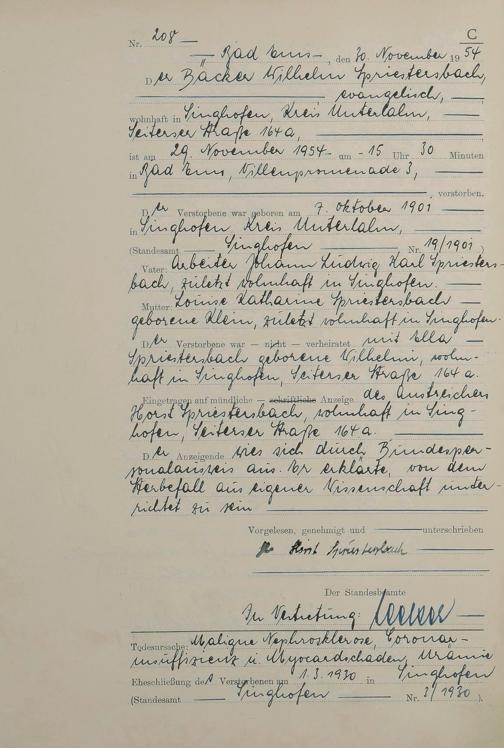 C
Nr. 208
Bad Ems, den 30. November 1954
Der Bäcker Wilhelm Spriestersbach,
evangelisch,
wohnhaft in Singhofen, Kreis Unterlahn,
Seiterser Straße 164a,
ist am 29. November 1954 um 15 Uhr 30 Minuten
in Bad Ems, Villenpromenade 3,
verstorben.
Der Verstorbene war geboren am 7. Oktober 1901
in Singhofen, Kreis Unterlahn,
(Standesamt Singhofen Nr. 19/1901)
Vater: Arbeiter Johann Ludwig Karl Spriesters-
bach, zuletzt wohnhaft in Singhofen.
Mutter: Louise Katharine Spriestersbach
geborene Klein, zuletzt wohnhaft in Singhofen.
Der Verstorbene war — nicht — verheiratet mit Ella
Spriestersbach geborene Wilhelmi, wohn-
haft in Singhofen, Seiterser Straße 164 a.
Eingetragen auf mündliche — schriftliche Anzeige des Anstreichers
Horst Spriestersbach, wohnhaft in Sing-
hofen, Seiterser Straße 164a.
Der Anzeigende wies sich durch Bundesper-
sonalausweis aus. Er erklärte, von dem
Sterbefall aus eigener Wissenschaft unter-
richtet zu sein
Vorgelesen, genehmigt und unterschrieben
Horst Spriestersbach
Der Standesbeamte
In Vertretung:
Todesursache: Maligne Nephrosklerose, Coronar-
insuffizienz u. Myocardschaden, Urämie
Eheschließung des Verstorbenen am 1.3.1930 in Singhofen
(Standesamt Singhofen Nr. 3/1930).